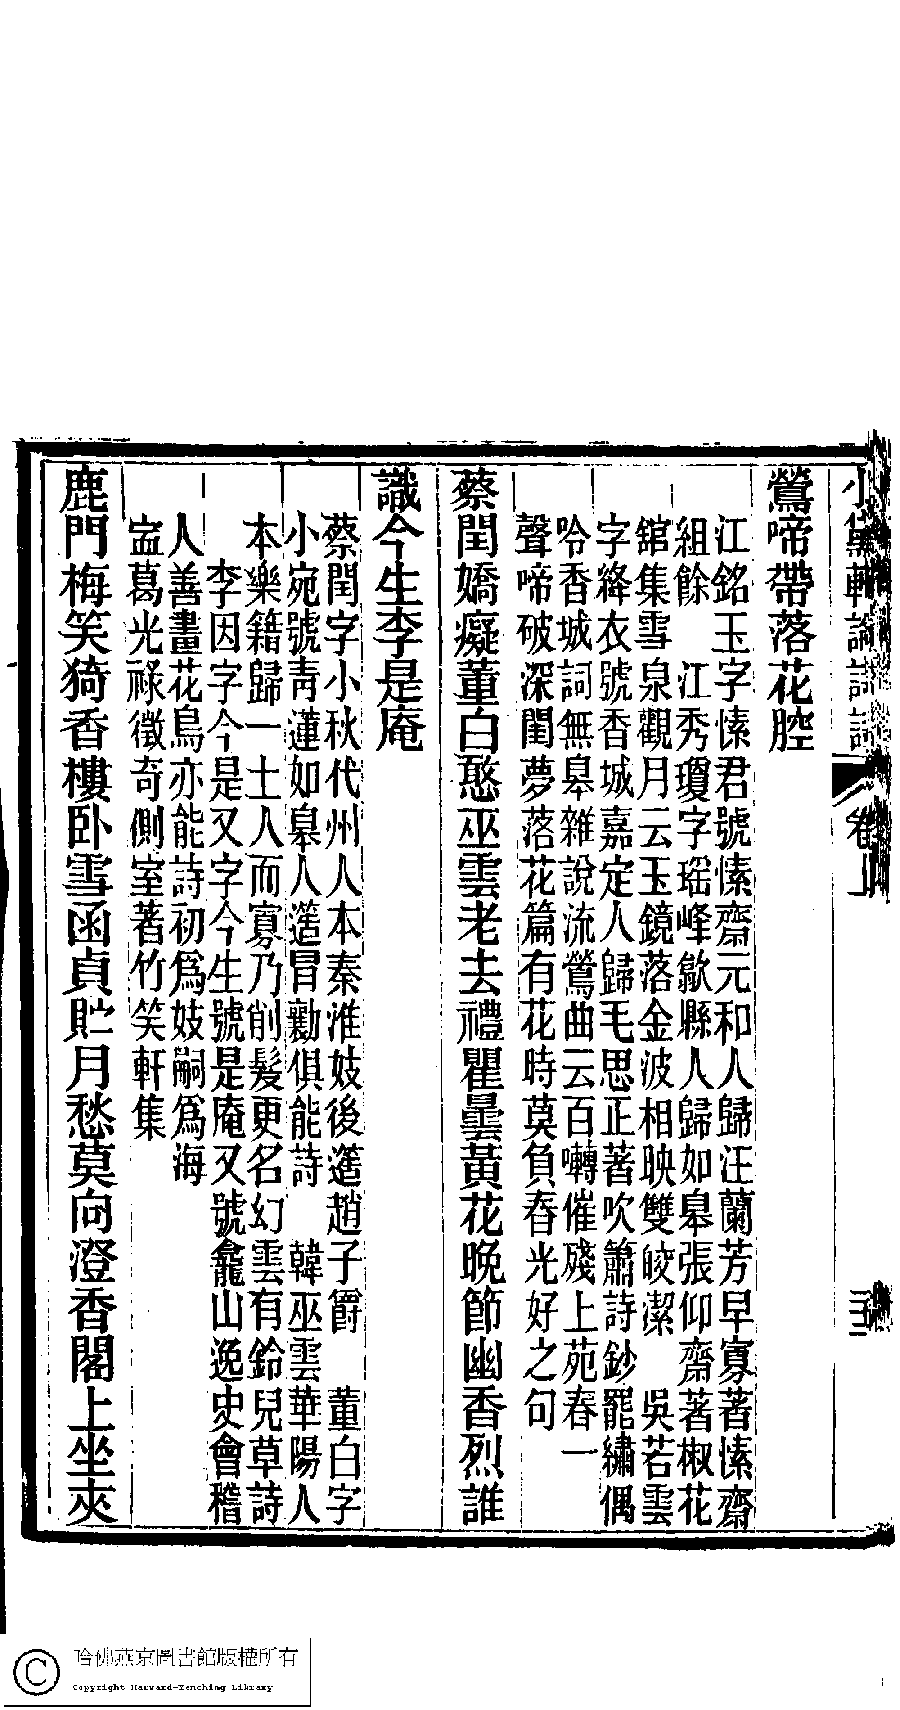 小黛軒論詩詩 卷上 三
鶯啼帶落花腔
江銘玉字愫君號愫齋元和人歸汪蘭芳早寡著愫齋
組餘　江秀瓊字瑶峰歙縣人歸如皋張仰齋著椒花
舘集雪泉觀月云玉鏡落金波相映雙皎潔　吳若雲
字絳衣號香城嘉定人歸毛思正著吹簫詩鈔罷繡偶
吟香城詞無皋雜說流鶯曲云百囀催殘上苑春一
聲啼破深閨夢落花篇有花時莫負春光好之句
蔡閏嬌癡董白憨巫雲老去禮瞿曇黃花晚節幽香烈誰
識今生李是庵
蔡閏字小秋代州人本秦淮妓後簉趙子爵　董白字
小宛號靑蓮如皋人簉冒勷俱能詩　韓巫雲華陽人
本樂籍歸一士人而寡乃削髮更名幻雲有鈴兒草詩
李因字今是又字今生號是庵又號龕山逸史會稽
人善畫花鳥亦能詩初爲妓嗣爲海
寍葛光祿徵奇側室著竹笑軒集
鹿門梅笑猗香樓卧雪函貞貯月愁莫向澄香閣上坐夾
哈佛燕京圖書館版權所有
Copyright Harvard-Yenching Library